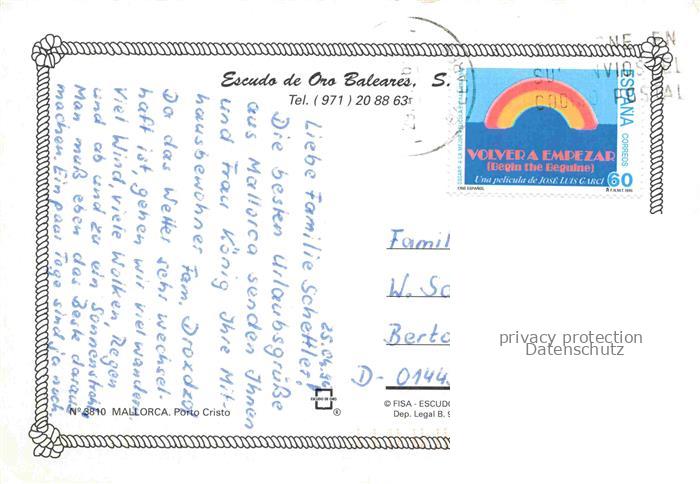 Escudo de Oro Baleares, S.
Tel. (971) 20 88 63
NE EN
SU NVIOS EL
CODI O POSTAL
ESPAÑA
CORREOS
VOLVER A EMPEZAR
(Begin the Beguine)
Una película de JOSÉ LUIS GARCI
60
CINE ESPAÑOL
F.N.M.T. 1995
Liebe Familie Schettler,
Die besten Urlaubsgrüße
aus Mallorca senden Ihnen
und Frau König Ihre Mit-
hausbewohner Fam. Droxdzo
Da das Wetter sehr wechsel-
haft ist, gehen wir viel wandern.
Viel Wind, viele Wolken, Regen
und ab und zu ein Sonnenstrahl.
Man muß eben das Beste daraus
machen. Ein paar Tage sind ja noch.
Famil
W. Sc
Berto
D- 0144
privacy protection
Datenschutz
Nº 3810 MALLORCA. Porto Cristo
®
© FISA - ESCUDO
Dep. Legal B. 9